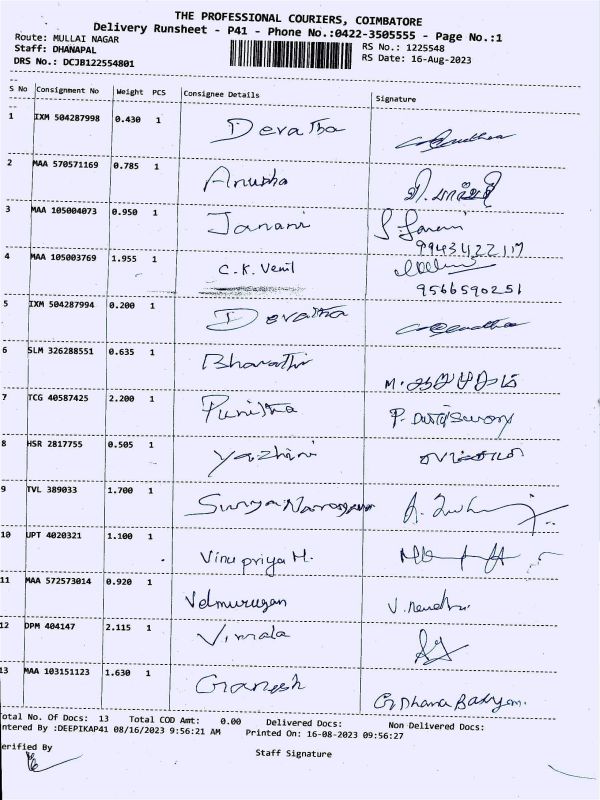 THE PROFESSIONAL COURIERS, COIMBATORE
Delivery Runsheet - P41 - Phone No.:0422-3505555 - Page No.:1
Route: MULLAI NAGAR RS No.: 1225548
Staff: DHANAPAL RS Date: 16-Aug-2023
DRS No.: DCJB122554801
S No Consignment No Weight PCS Consignee Details Signature
1 IXM 504287998 0.430 1 Devatha
2 MAA 570571169 0.785 1 Anusha
3 MAA 105004073 0.950 1 Janani
4 MAA 105003769 1.955 1 C.K. Venil
9566590251
5 IXM 504287994 0.200 1 Devatha
6 SLM 326288551 0.635 1 Bharathi
7 TCG 40587425 2.200 1 Punitha
8 HSR 2817755 0.505 1 Yazhini
9 TVL 389033 1.700 1
10 UPT 4020321 1.100 1 Vinu priya M.
11 MAA 572573014 0.920 1 Velmurugan
12 DPM 404147 2.115 1 Vimala
13 MAA 103151123 1.630 1 Ganesh
otal No. Of Docs: 13 Total COD Amt: 0.00 Delivered Docs: Non Delivered Docs:
ntered By :DEEPIKAP41 08/16/2023 9:56:21 AM Printed On: 16-08-2023 09:56:27
erified By Staff Signature